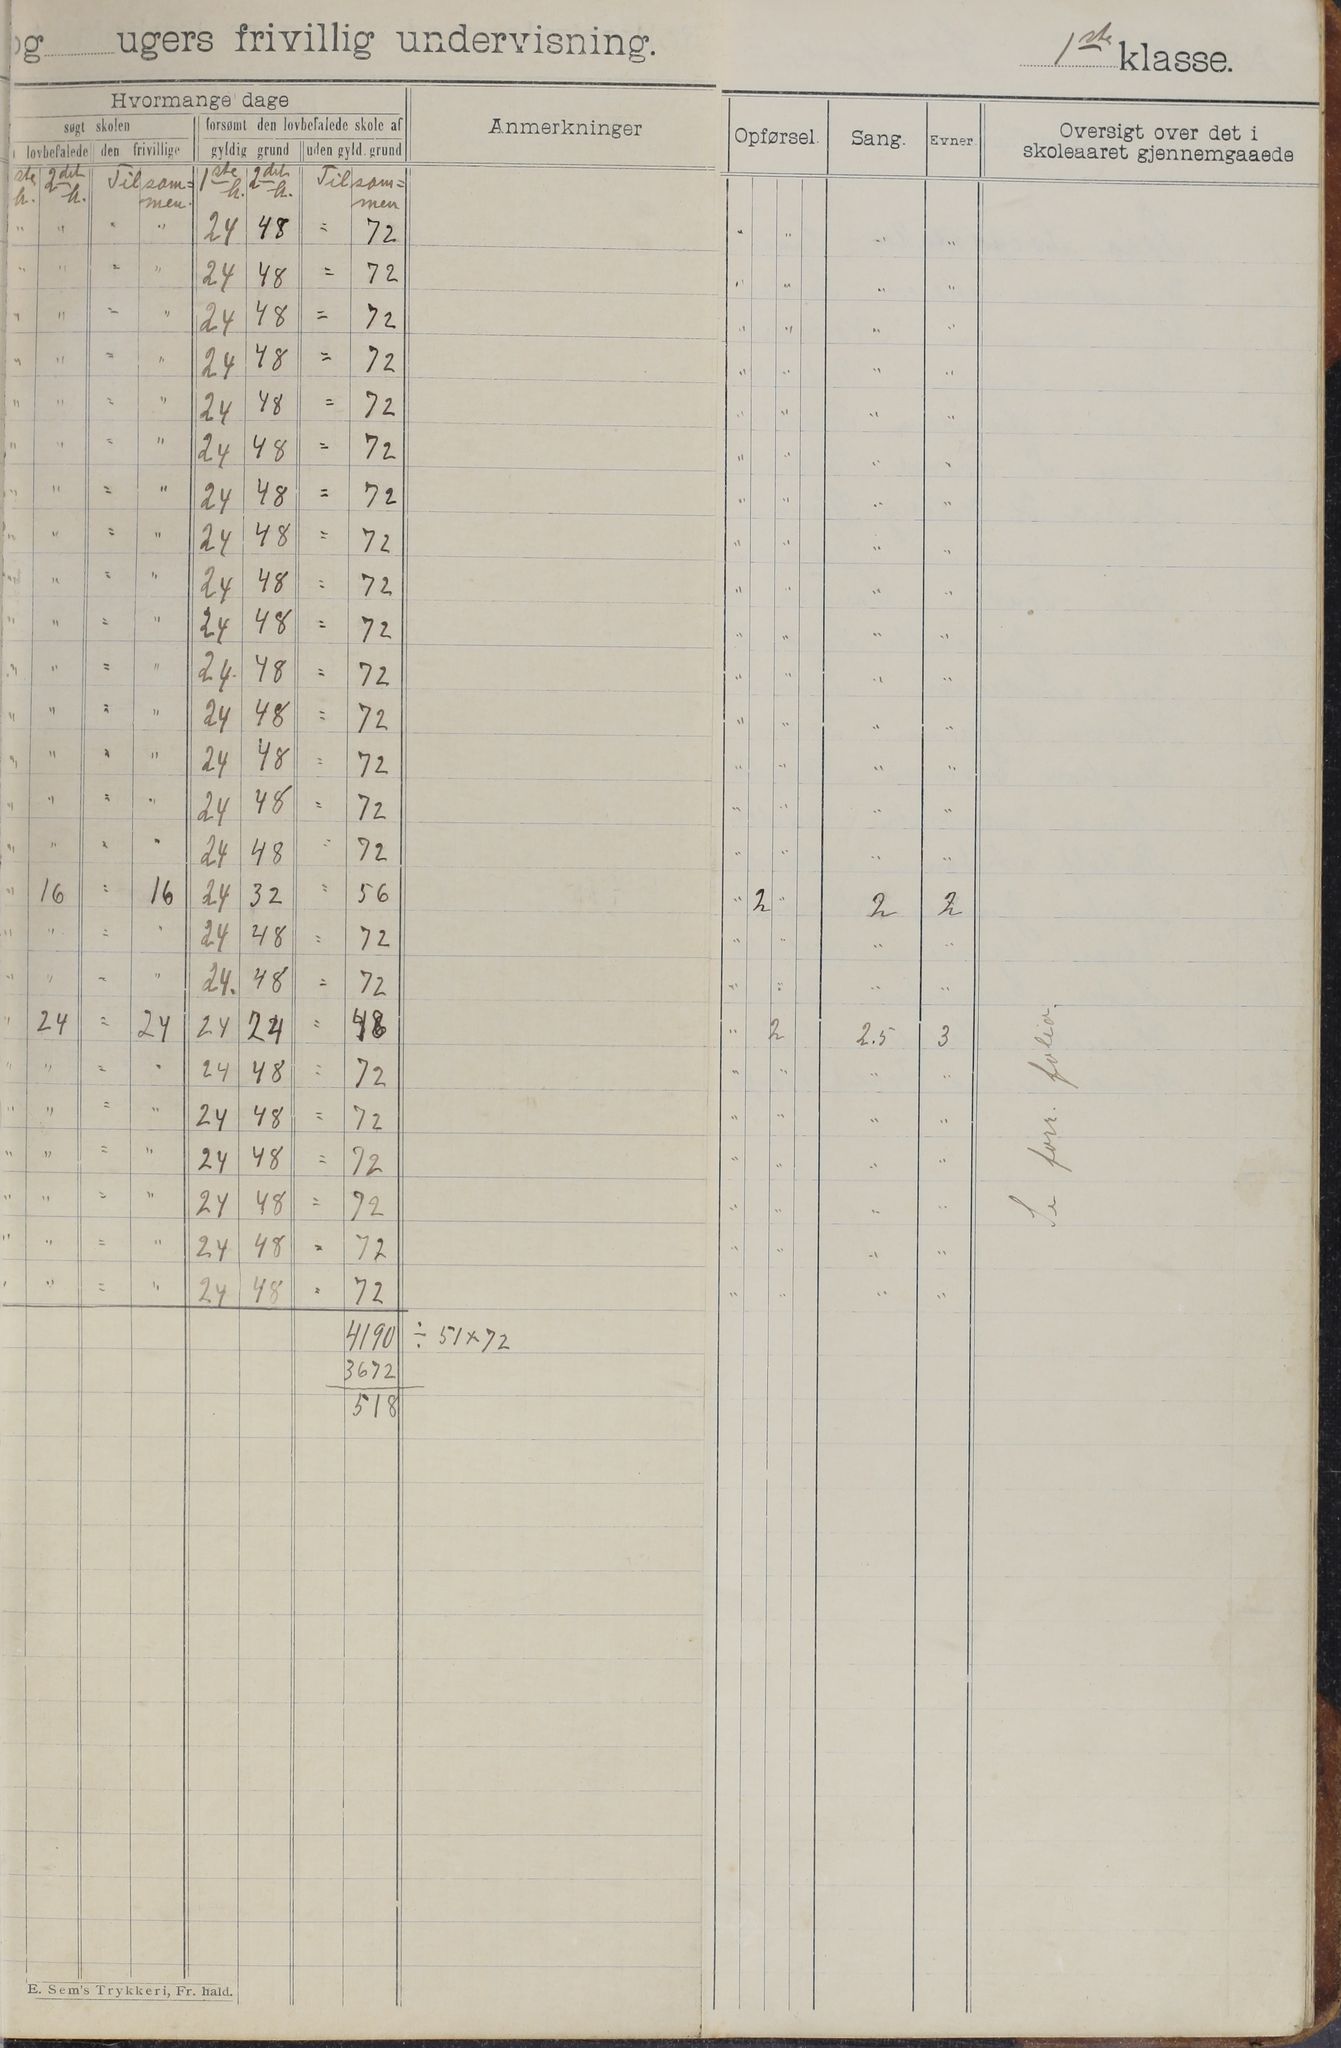 og ugers frivillig undervisning. 1ste klasse.
Hvormange dage
søgt skolen forsømt den lovbefalede skole af
lovbefalede den frivillige gyldig grund uden gyld. grund
Anmerkninger Opførsel. Sang. Evner. Oversigt over det i
skoleaaret gjennemgaaede
ste h. 2det h. Tilsammen. 1ste h. 2det h. Tilsammen
" " = " 24 48 = 72 " " " "
" " = " 24 48 = 72 " " " "
" " = " 24 48 = 72 " " " "
" " = " 24 48 = 72 " " " "
" " = " 24 48 = 72 " " " "
" " = " 24 48 = 72 " " " "
" " = " 24 48 = 72 " " " "
" " = " 24 48 = 72 " " " "
" " = " 24 48 = 72 " " " "
" " = " 24 48 = 72 " " " "
" " = " 24 48 = 72 " " " "
" " = " 24 48 = 72 " " " "
" " = " 24 48 = 72 " " " "
" " = " 24 48 = 72 " " " "
" " = " 24 48 = 72 " " " "
" 16 = 16 24 32 = 56 " 2 " 2 2
" " = " 24 48 = 72 " " " "
" " = " 24 48 = 72 " " " "
" 24 = 24 24 24 = 48 " 2 2.5 3
" " = " 24 48 = 72 " " " "
" " = " 24 48 = 72 " " " "
" " = " 24 48 = 72 " " " "
" " = " 24 48 = 72 " " " "
" " = " 24 48 = 72 " " " "
" " = " 24 48 = 72 " " " "
Se forr. folio.
4190 ÷ 51×72
3672
518
E. Sem's Trykkeri, Fr. hald.